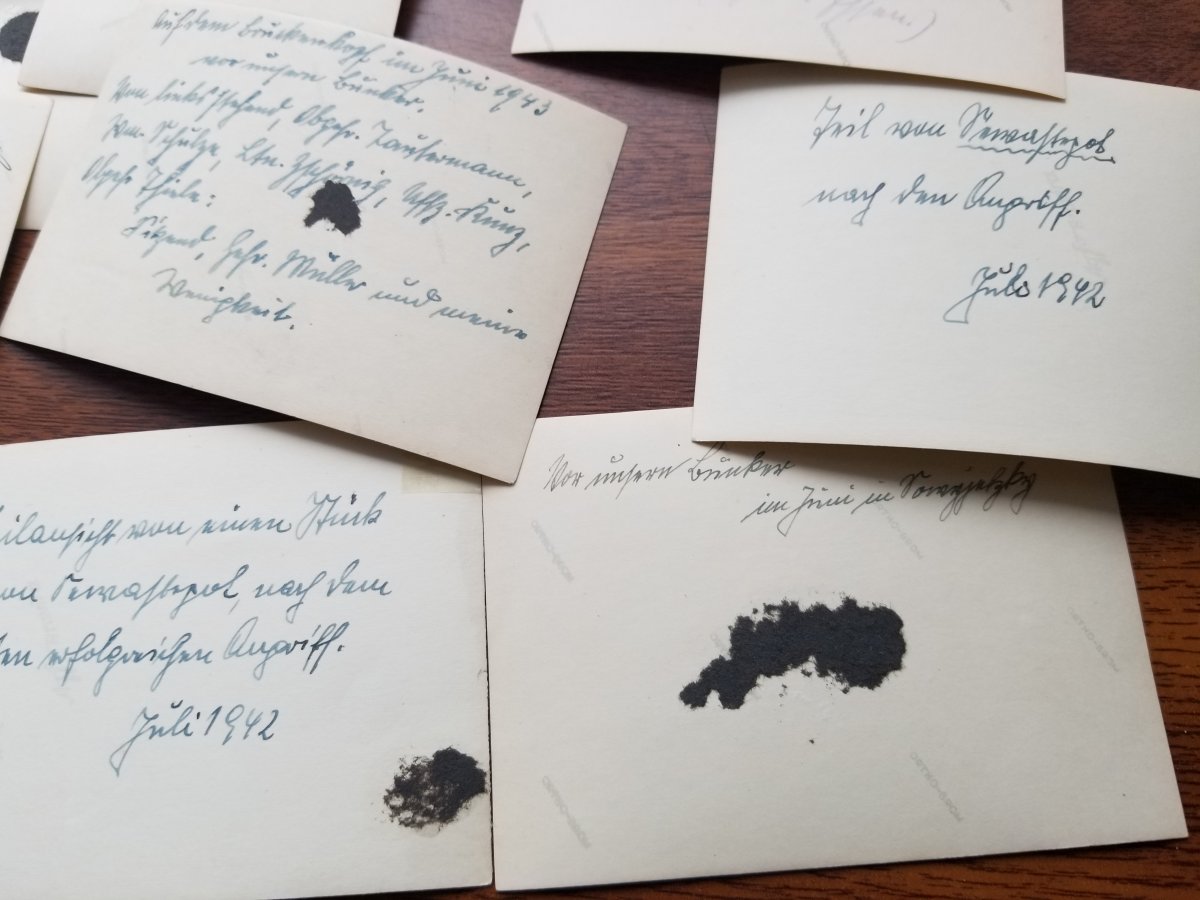 Auf dem Brückenkopf im Juni 1943
vor unsern Bunker.
Von links stehend, Obgefr. Tautermann,
Wm. Schulze, Ltn. Zschörnig, Uffz. Kunz,
Obgefr Thiele:
Sitzend, Gefr. Müller und meine
Wenigkeit.
Teil von Sewastopol
nach den Angriff.
Juli 1942
ilansicht von einen Stück
on Sewastopol, nach dem
en erfolgreichen Angriff.
Juli 1942
Vor unsern Bunker
im Juni in